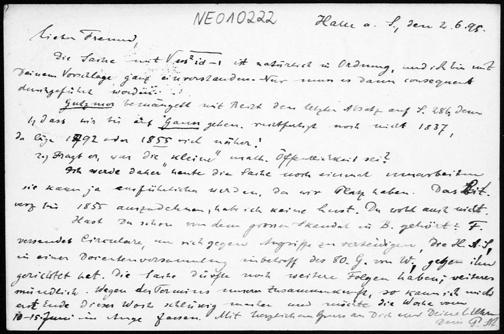 NEO10222
Halle a. S., den 2.6.95.
Lieber Freund,
Die Sache mit ist natürlich in Ordnung, und ich bin mit
Deinem Vorschlage ganz einverstanden. Nur muss es dann consequent
durchgeführt werden.
Gutzmer bemängelt mit Recht den letzten Absatz auf S. 286, denn
1) dass wir bis auf Gauss gehen, rechtfertigt noch nicht 1837,
da läge 1792 oder 1855 viel näher!
2) Fragt er, was die "kleine" math. Öffentlichkeit sei?
Ich werde daher heute die Sache noch einmal umarbeiten
sie kann ja ausführlicher werden, da wir Platz haben. Das
bis 1855 auszudehnen, hab ich keine Lust. Du wohl auch nicht.
Hast Du schon von dem grossen Skandal in B. gehört? F.
versendet Circulare, um sich gegen Angriffe zu verteidigen, die H. A. S.
in einer Docentenversammlung des 80. G. von W. gegen ihn
gerichtet hat. Die Sache dürfte noch weitere Folgen haben; weiteres
mündlich. Wegen des Termines unserer Zusammenkunft, so kann ich mich
erst Ende dieser Woche schlüssig machen und möchte die Woche vom
10-15 Juni in Auge fassen. Mit herzlichem Gruss an Dich und Deine